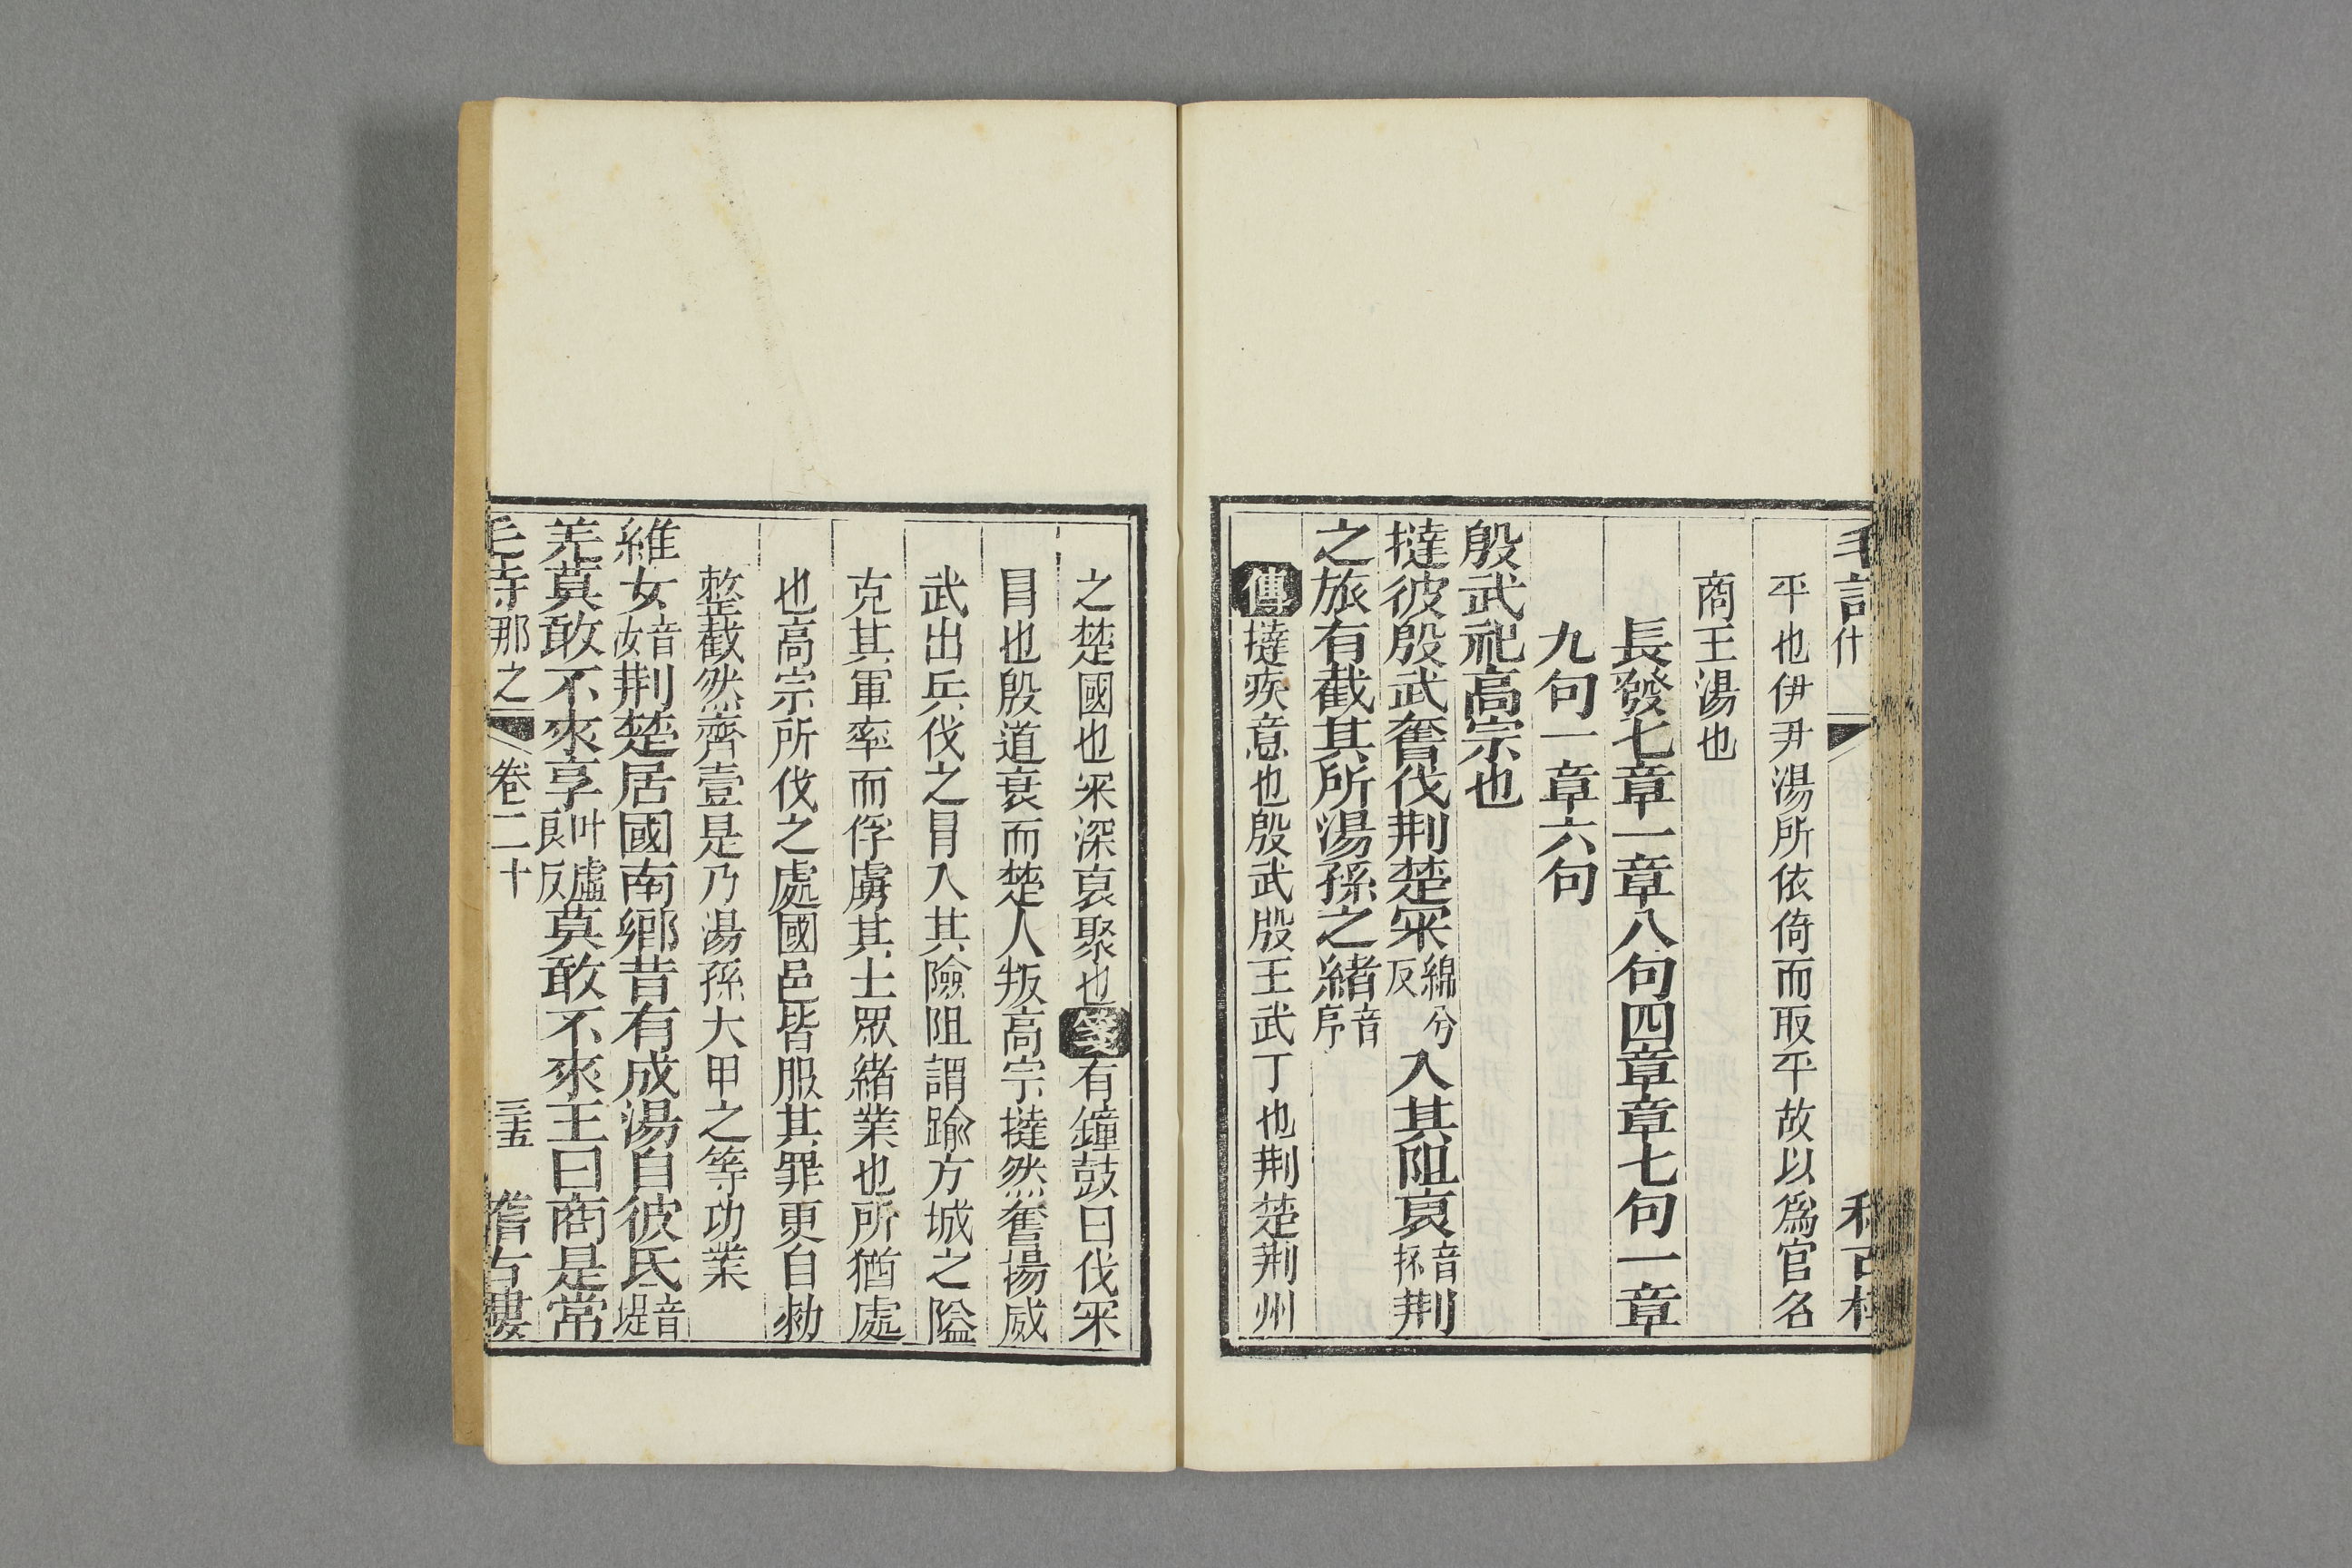 平也伊尹湯所依倚而取平故以爲官名
商王湯也
長發七章一章八句四章章七句一章
九句一章六句
殷武祀高宗也
撻彼殷武奮伐荆楚罙綿兮反入其阻裒音抔荆
之旅有截其所湯孫之緒音序
傳撻疾意也殷武殷王武丁也荆楚荆州
之楚國也罙深裒聚也箋有鐘鼓曰伐罙
冒也殷道衰而楚人叛高宗撻然奮揚威
武出兵伐之冒入其險阻謂踰方城之隘
克其軍率而俘虜其士眾緒業也所猶處
也高宗所伐之處國邑皆服其罪更自勑
整截然齊壹是乃湯孫大甲之等功業
維女音汝荆楚居國南鄉昔有成湯自彼氐音堤
羌莫敢不來享叶虛良反莫敢不來王曰商是常
毛詩 那之 卷二十 三五 稽古樓